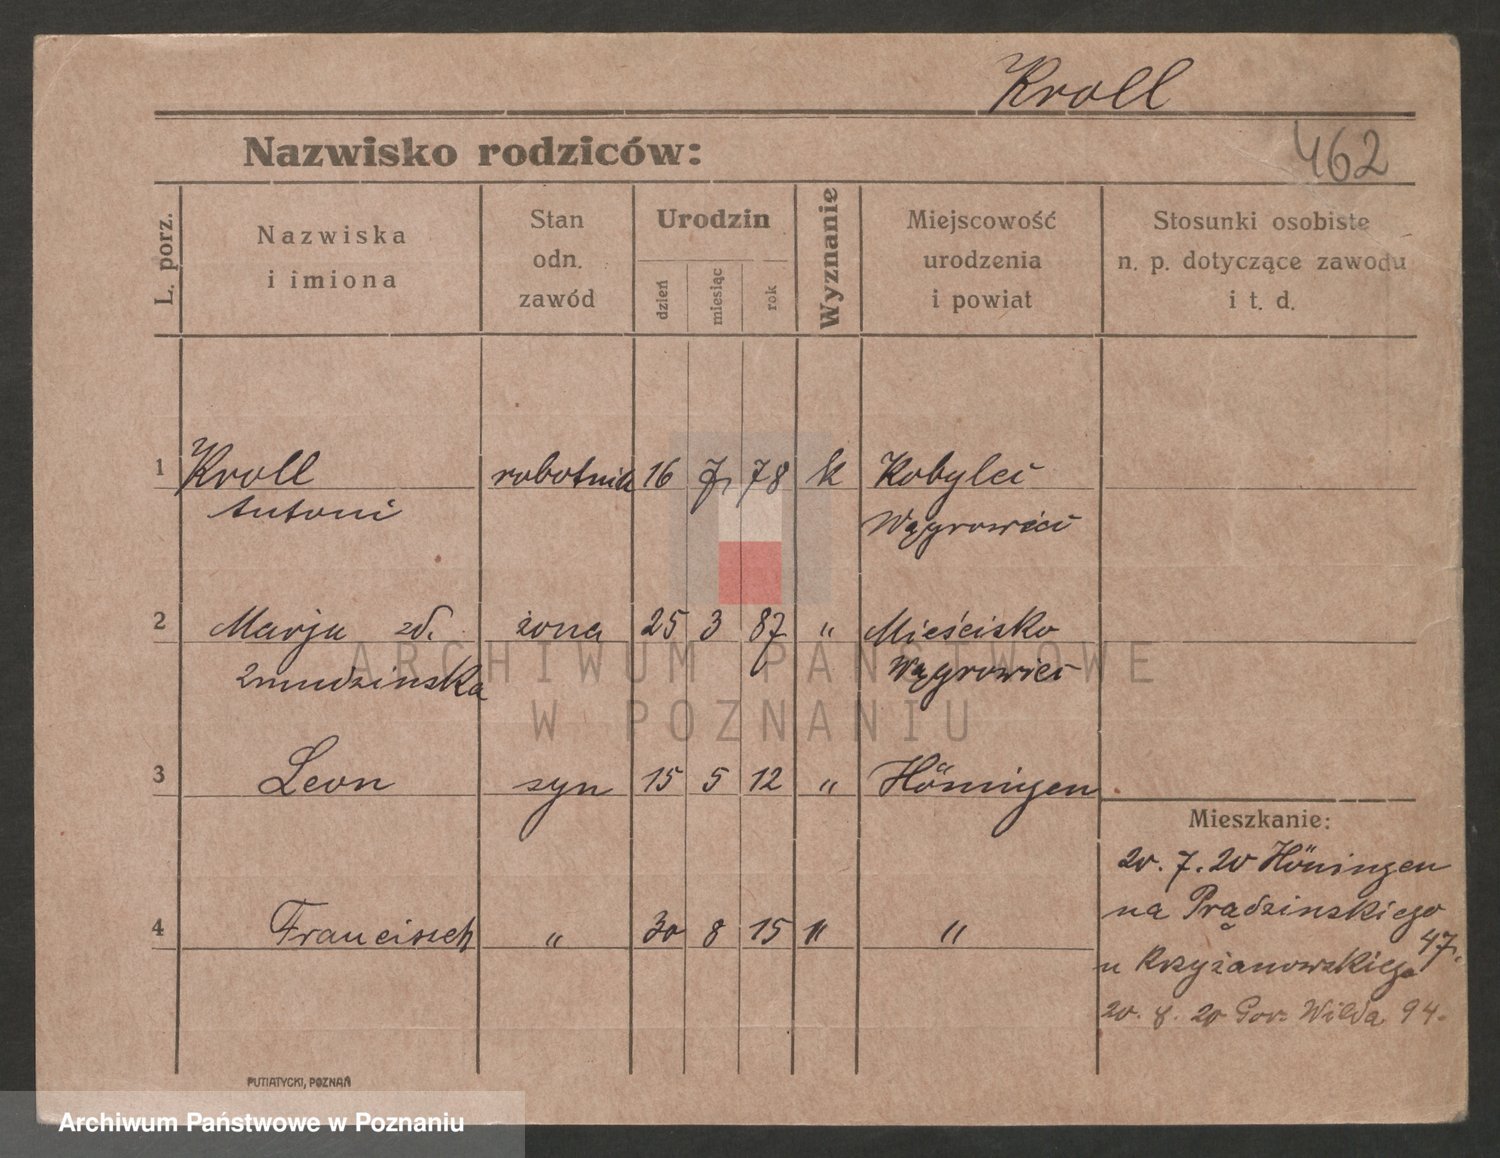 Kroll
Nazwisko rodziców:
462
L. porz.
Nazwiska
i imiona
Stan
odn.
zawód
Urodzin
dzień
miesiąc
rok
Wyznanie
Miejscowość
urodzenia
i powiat
Stosunki osobiste
n. p. dotyczące zawodu
i t. d.
1 Kroll robotnik 16 7 78 k Kobylec
Antoni Wągrowiec
2 Marja zd. żona 25 3 87 " Mieścisko
Zmudzinska Wągrowiec
ARCHIWUM PAŃSTWOWE
W POZNANIU
3 Leon syn 15 5 12 " Höningen
Mieszkanie:
20. 7. 20 Höningen
4 Franciszek " 30 8 15 " "
na Prądzinskiego
47.
u Krzyżanowskiego
20. 8. 20 Gor. Wilda 94.
PUTIATYCKI, POZNAŃ
Archiwum Państwowe w Poznaniu